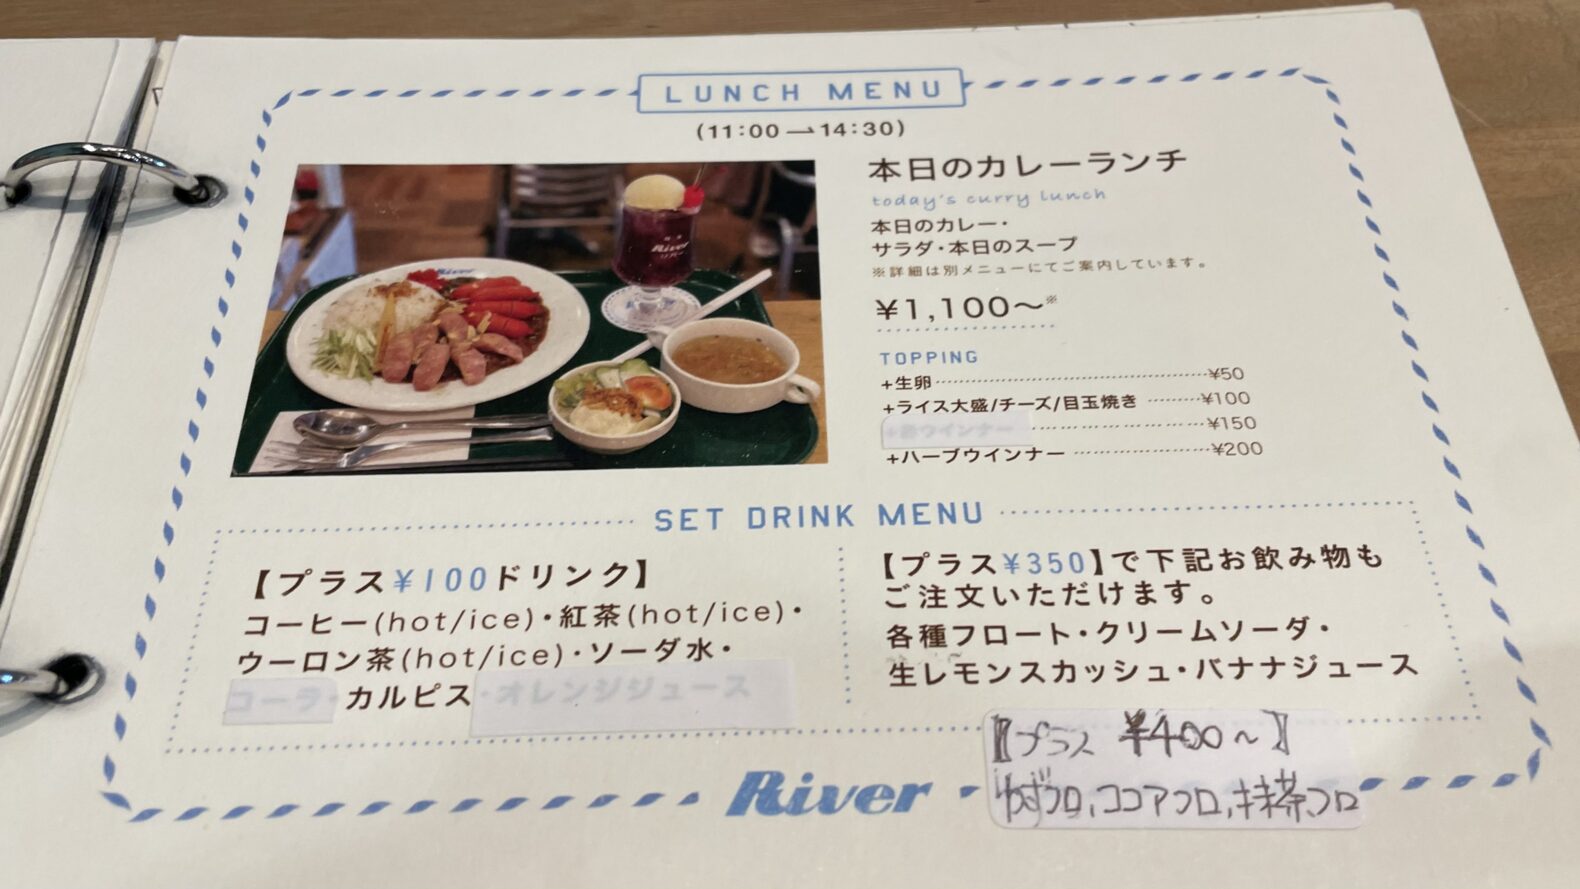 LUNCH MENU
(11:00—14:30)
本日のカレーランチ
today's curry lunch
本日のカレー・
サラダ・本日のスープ
※詳細は別メニューにてご案内しています。
¥1,100～※
TOPPING
+生卵 ¥50
+ライス大盛/チーズ/目玉焼き ¥100
ウインナー ¥150
+ハーブウインナー ¥200
River
River
SET DRINK MENU
【プラス¥100ドリンク】
コーヒー(hot/ice)・紅茶(hot/ice)・
ウーロン茶(hot/ice)・ソーダ水・
コーラ・カルピス・オレンジジュース
【プラス¥350】で下記お飲み物も
ご注文いただけます。
各種フロート・クリームソーダ・
生レモンスカッシュ・バナナジュース
【プラス ¥400～】
ゆずフロ,ココアフロ,抹茶フロ
River